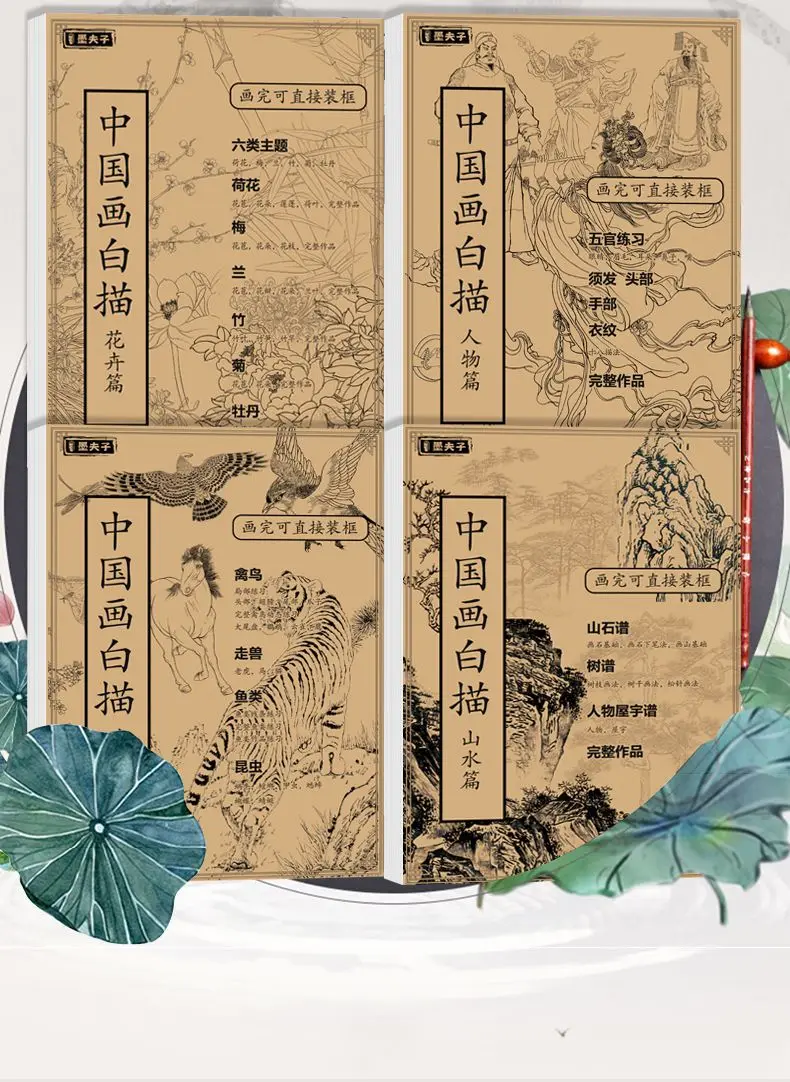 墨夫子
中国画白描
花卉篇
画完可直接装框
六类主题
荷花、梅、兰、竹、菊、牡丹
荷花
花苞、花朵、莲蓬、荷叶、完整作品
梅
花苞、花朵、花枝、完整作品
兰
花苞、花瓣、花朵、兰叶、完整作品
竹
竹叶、竹笋、竹竿、完整作品
菊
花苞、花朵、完整作品
牡丹
墨夫子
中国画白描
人物篇
画完可直接装框
五官练习
须发 头部
手部
衣纹
十八描法
完整作品
墨夫子
中国画白描
画完可直接装框
禽鸟
局部练习
走兽
鱼类
昆虫
墨夫子
中国画白描
山水篇
画完可直接装框
山石谱
画石基础、画石下笔法、画山基础
树谱
树枝画法、树干画法、松针画法
人物屋宇谱
人物、屋宇
完整作品